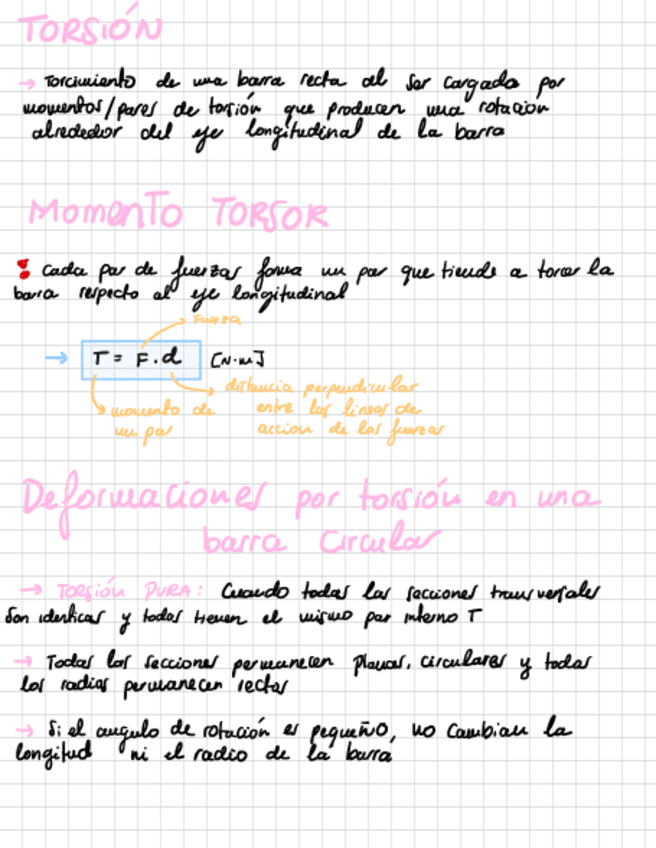 TORSIÓN
→ Torcimiento de una barra recta al ser cargada por
momentos/pares de torsión que producen una rotacion
alrededor del eje longitudinal de la barra
Momento TORSOR
Cada par de fuerzas forma un par que tiende a torcer la
barra respecto al eje longitudinal
Fuerza
→ T = F.d [N.m]
distancia perpendicular
momento de entre las lineas de
un par accion de las fuerzas
Deformaciones por torsión en una
barra Circular
→ TORSIÓN PURA: Cuando todas las secciones transversales
son identicas y todas tienen el mismo par interno T
→ Todas las secciones permanecen planas, circulares y todas
los radios permanecen rectos
→ Si el angulo de rotación es pequeño, no cambian la
longitud ni el radio de la barra